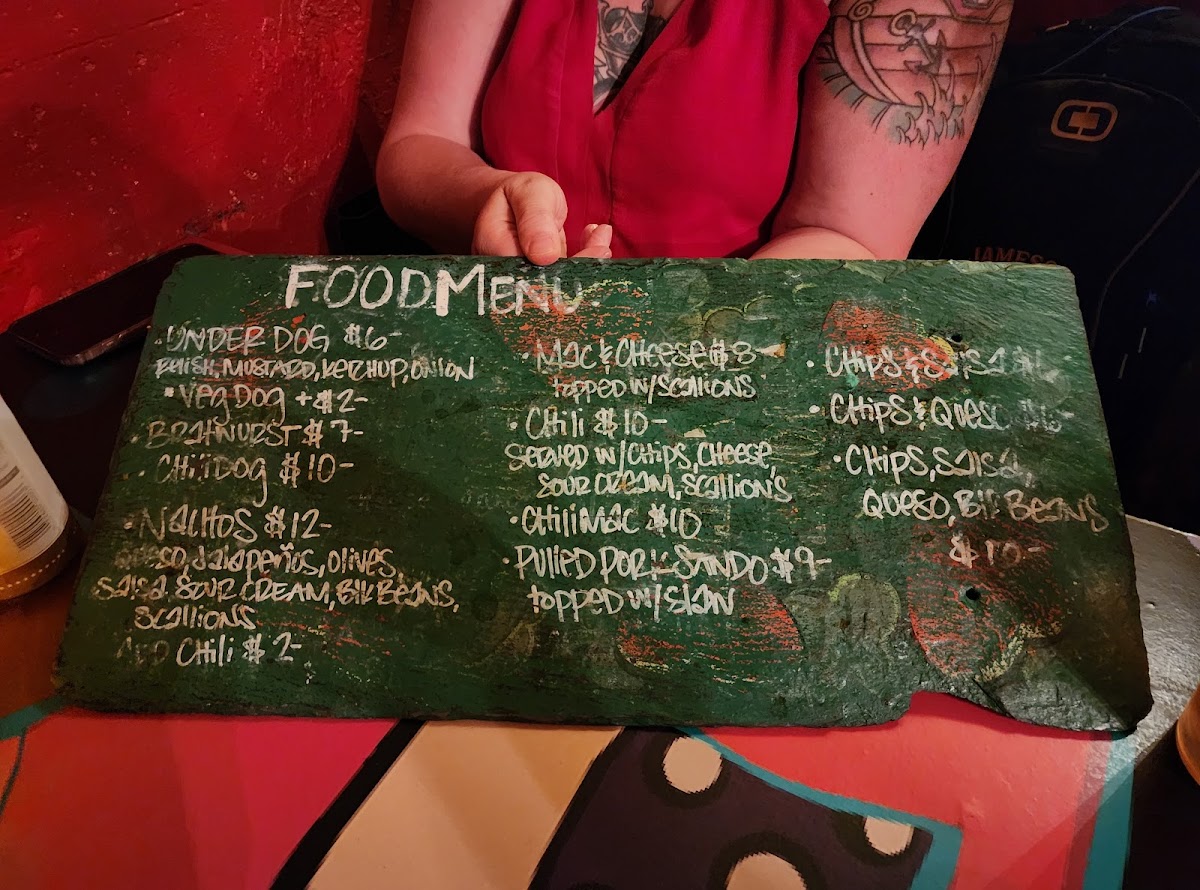 FOOD MENU
·UNDER DOG $6-
RELISH, MUSTARD, KETCHUP, ONION
·VEG DOG +$2-
·BRATWURST $7-
·CHILI DOG $10-
·NACHOS $12-
QUESO, JALAPEÑOS, OLIVES
SALSA, SOUR CREAM, BLK BEANS,
SCALLIONS
ADD CHILI $2-
·MAC & CHEESE $8-
TOPPED W/SCALLIONS
·CHILI $10-
SERVED W/CHIPS, CHEESE,
SOUR CREAM, SCALLION'S
·CHILI MAC $10
·PULLED PORK SANDO $9-
TOPPED W/SLAW
·CHIPS & SALSA
·CHIPS & QUESO
·CHIPS, SALSA,
QUESO, BLK BEANS
$10-
JAMESO